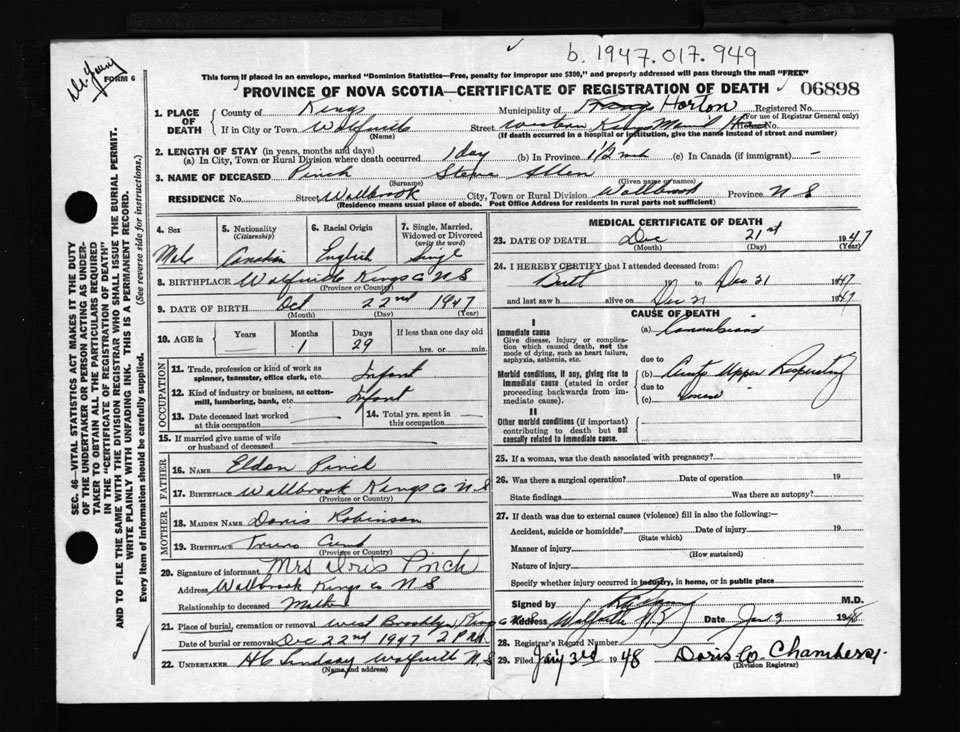 b. 1947.017.949
FORM 6
This form if placed in an envelope, marked "Dominion Statistics—Free, penalty for improper use $300," and properly addressed will pass through the mail "FREE"
PROVINCE OF NOVA SCOTIA—CERTIFICATE OF REGISTRATION OF DEATH 06898
1. PLACE OF DEATH County of Kings Municipality of Horton Registered No.
(For use of Registrar General only)
If in City or Town Wolfville Street Western Kings Mem'l House No.
(Name) (If death occurred in a hospital or institution, give the name instead of street and number)
2. LENGTH OF STAY (in years, months and days)
(a) In City, Town or Rural Division where death occurred 1 day (b) In Province 1½ mth (c) In Canada (if immigrant) –
3. NAME OF DECEASED Pinch Steve Allen
(Surname) (Given name or names)
RESIDENCE No. Street Wallbrook City, Town or Rural Division Wallbrook Province N S
(Residence means usual place of abode. Post Office Address for residents in rural parts not sufficient)
4. Sex 5. Nationality (Citizenship) 6. Racial Origin 7. Single, Married, Widowed or Divorced (write the word)
Male Canadian English Single
8. BIRTHPLACE Wolfville Kings Co N S
(Province or Country)
9. DATE OF BIRTH Oct 22nd 1947
(Month) (Day) (Year)
10. AGE in Years Months Days If less than one day
1 29 hrs. or min.
OCCUPATION
11. Trade, profession or kind of work as spinner, teamster, office clerk, etc. Infant
12. Kind of industry or business, as cotton-mill, lumbering, bank, etc. Infant
13. Date deceased last worked at this occupation 14. Total yrs. spent in this occupation
15. If married give name of wife or husband of deceased
FATHER
16. NAME Eldon Pinch
17. BIRTHPLACE Wallbrook Kings Co N S
(Province or Country)
MOTHER
18. MAIDEN NAME Doris Robinson
19. BIRTHPLACE Truro
(Province or Country)
20. Signature of informant Mrs Doris Pinch
Address Wallbrook Kings Co N S
Relationship to deceased Mother
21. Place of burial, cremation or removal West Brooklyn Kings Co N S
Date of burial or removal Dec 22nd 1947 2 P.M.
22. UNDERTAKER H C Lindsay Wolfville N S
(Name and address)
MEDICAL CERTIFICATE OF DEATH
23. DATE OF DEATH Dec 21st 1947
(Month) (Day) (Year)
24. I HEREBY CERTIFY that I attended deceased from:
19 to Dec 21 1947
and last saw h alive on Dec 21 1947
CAUSE OF DEATH
I
Immediate cause (a) Convulsions
Give disease, injury or complication which caused death, not the mode of dying, such as heart failure, asphyxia, asthenia, etc.
due to
Morbid conditions, if any, giving rise to immediate cause (stated in order proceeding backwards from immediate cause). (b) Acute Upper Respiratory
due to
(c)
II
Other morbid conditions (if important) contributing to death but not causally related to immediate cause.
25. If a woman, was the death associated with pregnancy?
26. Was there a surgical operation? Date of operation 19
State findings Was there an autopsy?
27. If death was due to external causes (violence) fill in also the following:—
Accident, suicide or homicide? Date of injury 19
(State which)
Manner of injury
(How sustained)
Nature of injury
Specify whether injury occurred in industry, in home, or in public place
Signed by M.D.
Address Wolfville N.S. Date Jan 3 1948
28. Registrar's Record Number
29. Filed Jan'y 3rd 1948 Doris W. Chambers
(Division Registrar)
SEC. 46—VITAL STATISTICS ACT MAKES IT THE DUTY
OF THE UNDERTAKER OR PERSON ACTING AS UNDER-
TAKER TO OBTAIN ALL THE PARTICULARS REQUIRED
IN THE "CERTIFICATE OF REGISTRATION OF DEATH"
AND TO FILE THE SAME WITH THE DIVISION REGISTRAR WHO SHALL ISSUE THE BURIAL PERMIT.
WRITE PLAINLY WITH UNFADING INK. THIS IS A PERMANENT RECORD.
Every item of information should be carefully supplied. (See reverse side for instructions.)